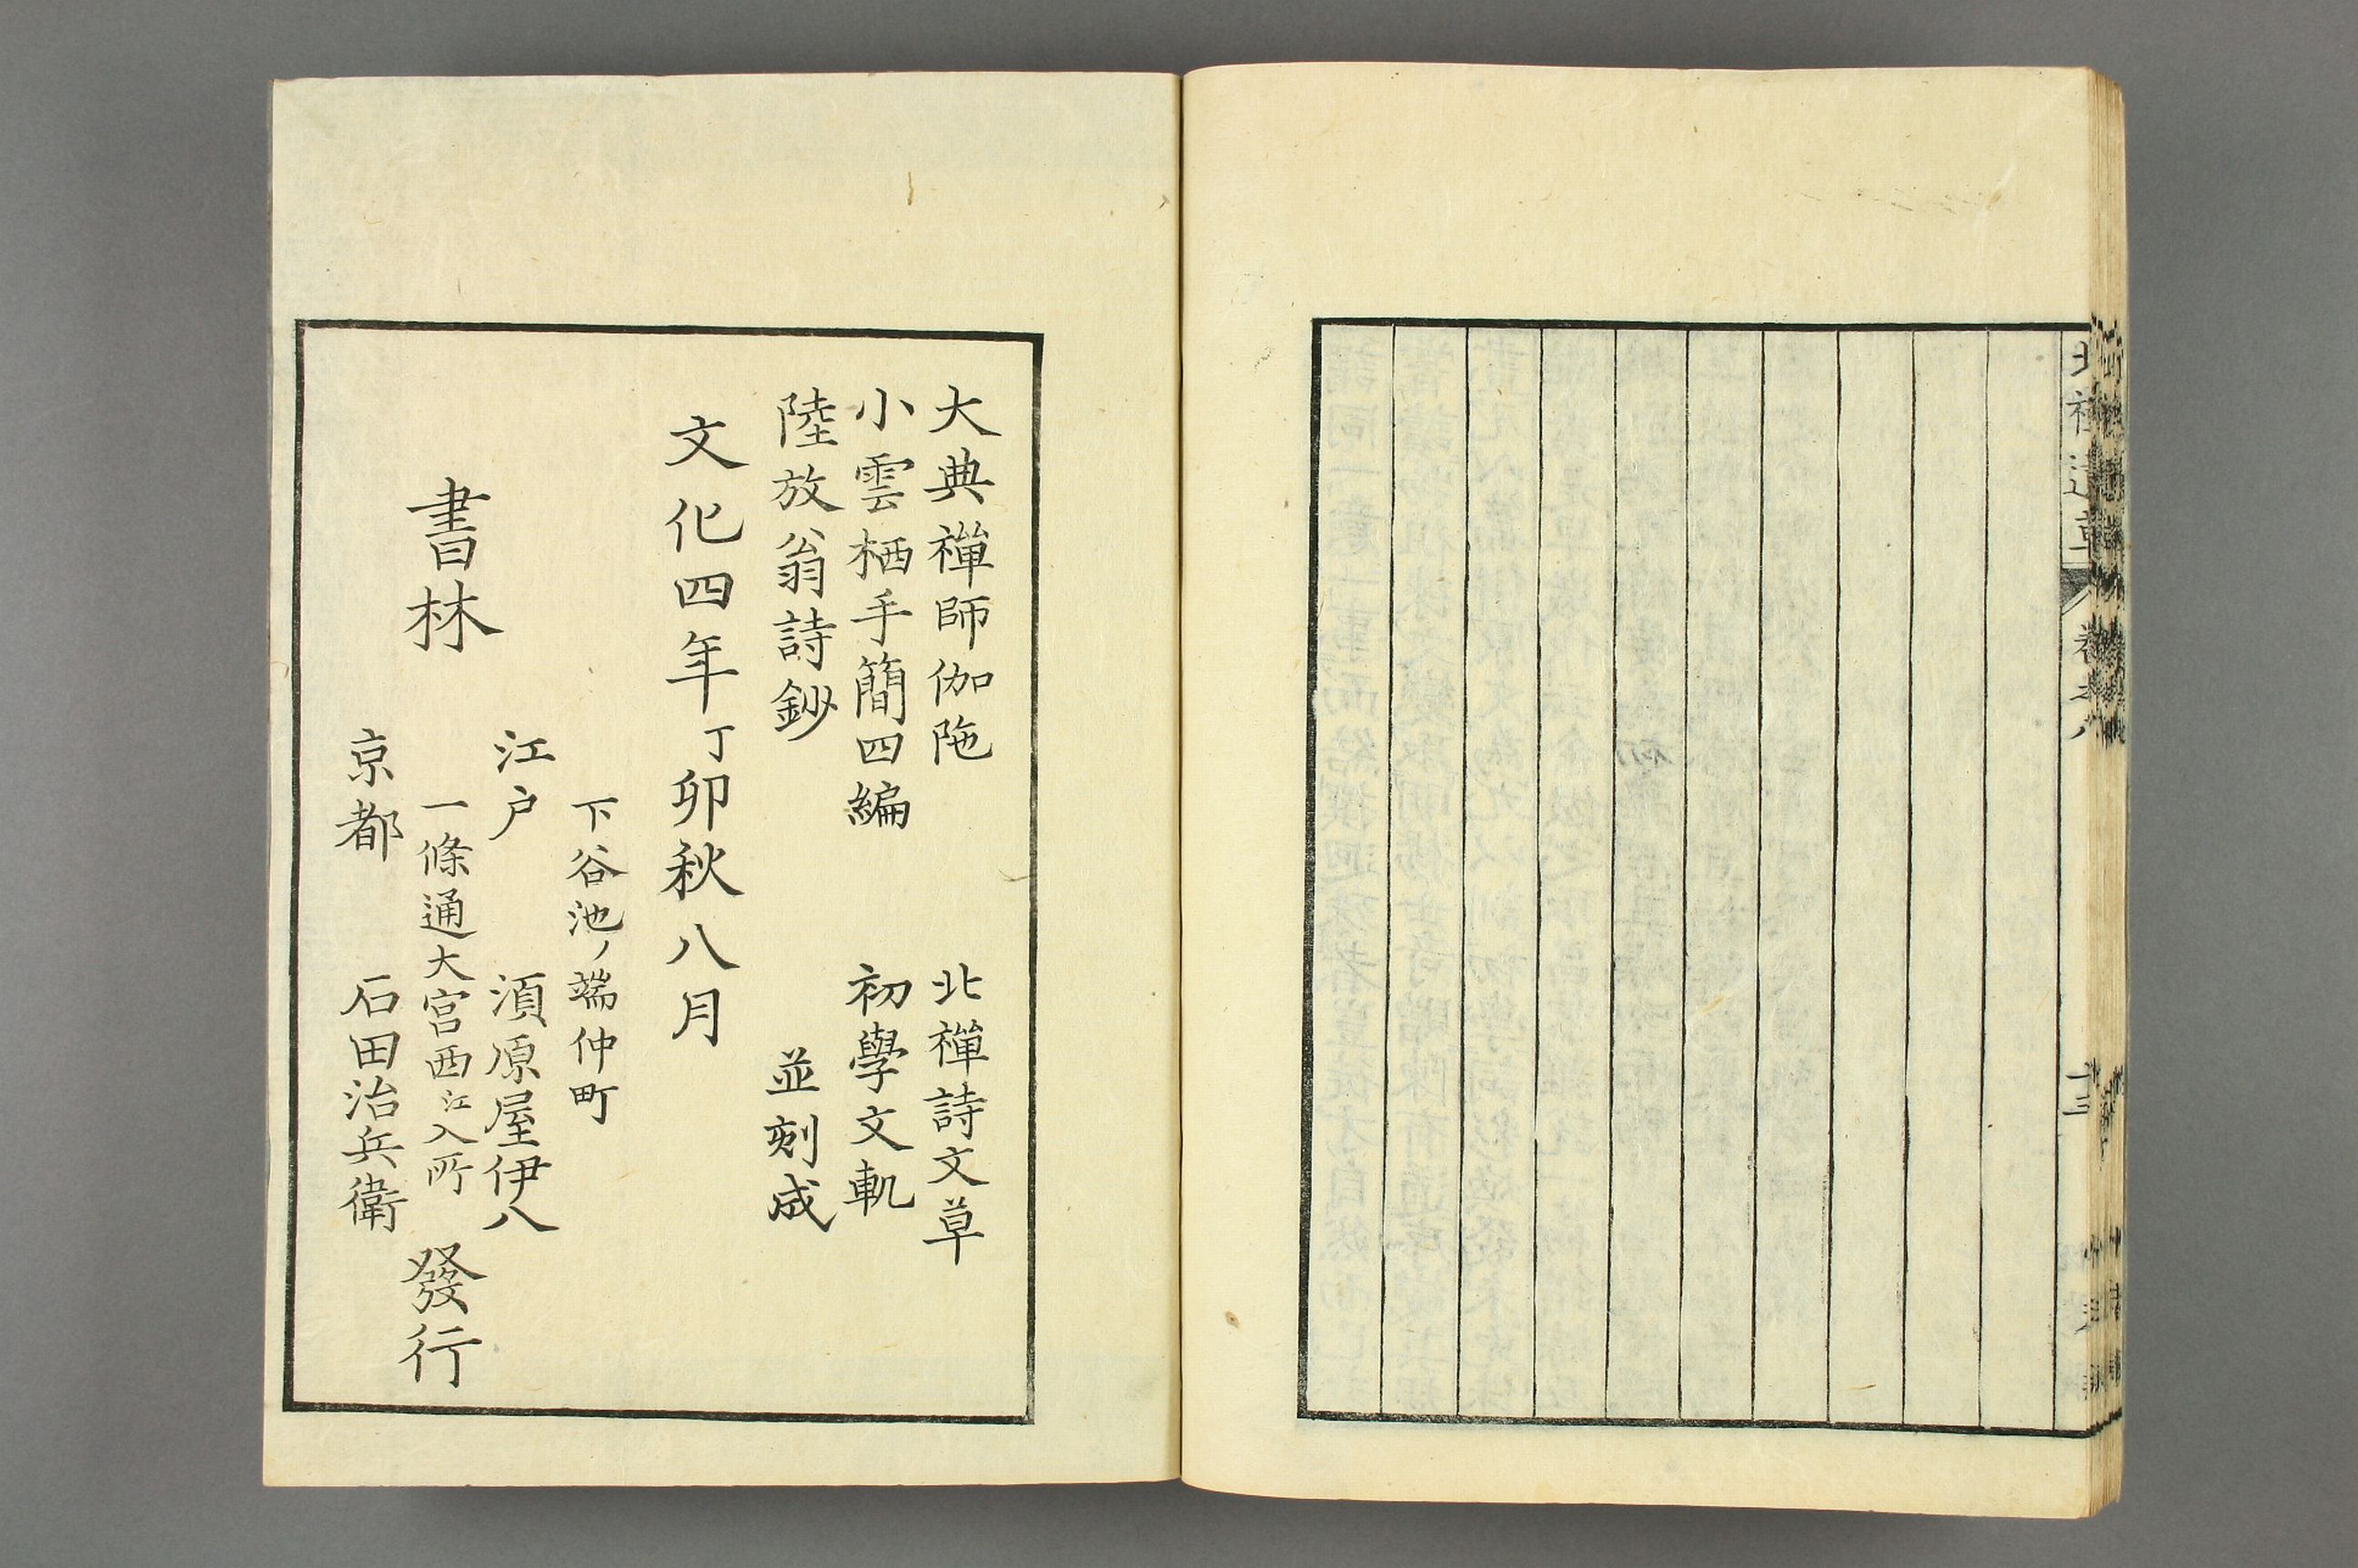 大典禪師伽陁　北禪詩文草
小雲栖手簡四編　初學文軌
陸放翁詩鈔　並刻成
文化四年丁卯秋八月
書林
下谷池ノ端仲町
江戸　湏原屋伊八
一條通大宮西江入所
京都　石田治兵衛
發行